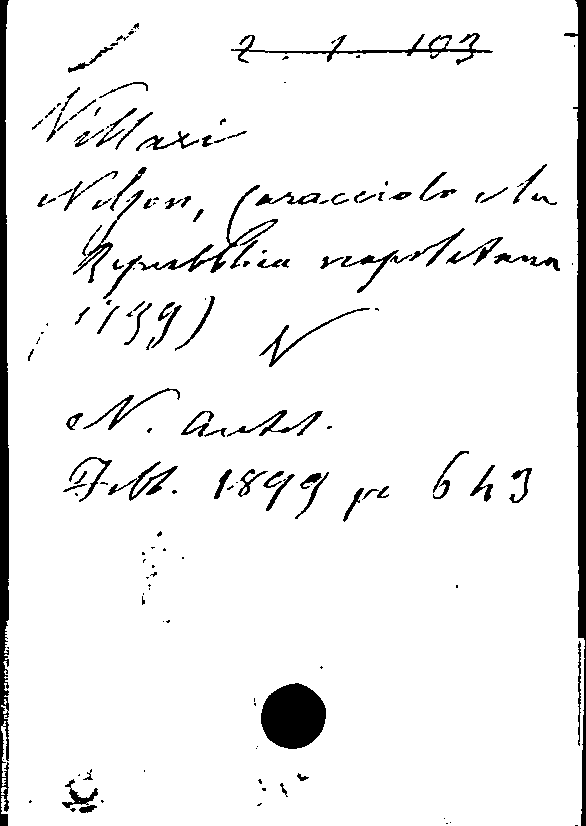 2. 1. 103
Villari
Nelson, Caracciolo e la
Repubblica napoletana
(1799)
N
N. Antol.
Febb. 1899 pc 643